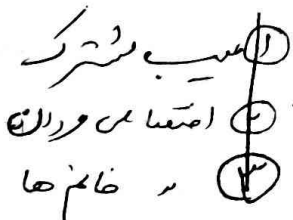 ۱ عیب مشترک
۲ اختصاصی مردانه
۳ 〃 خانم ها